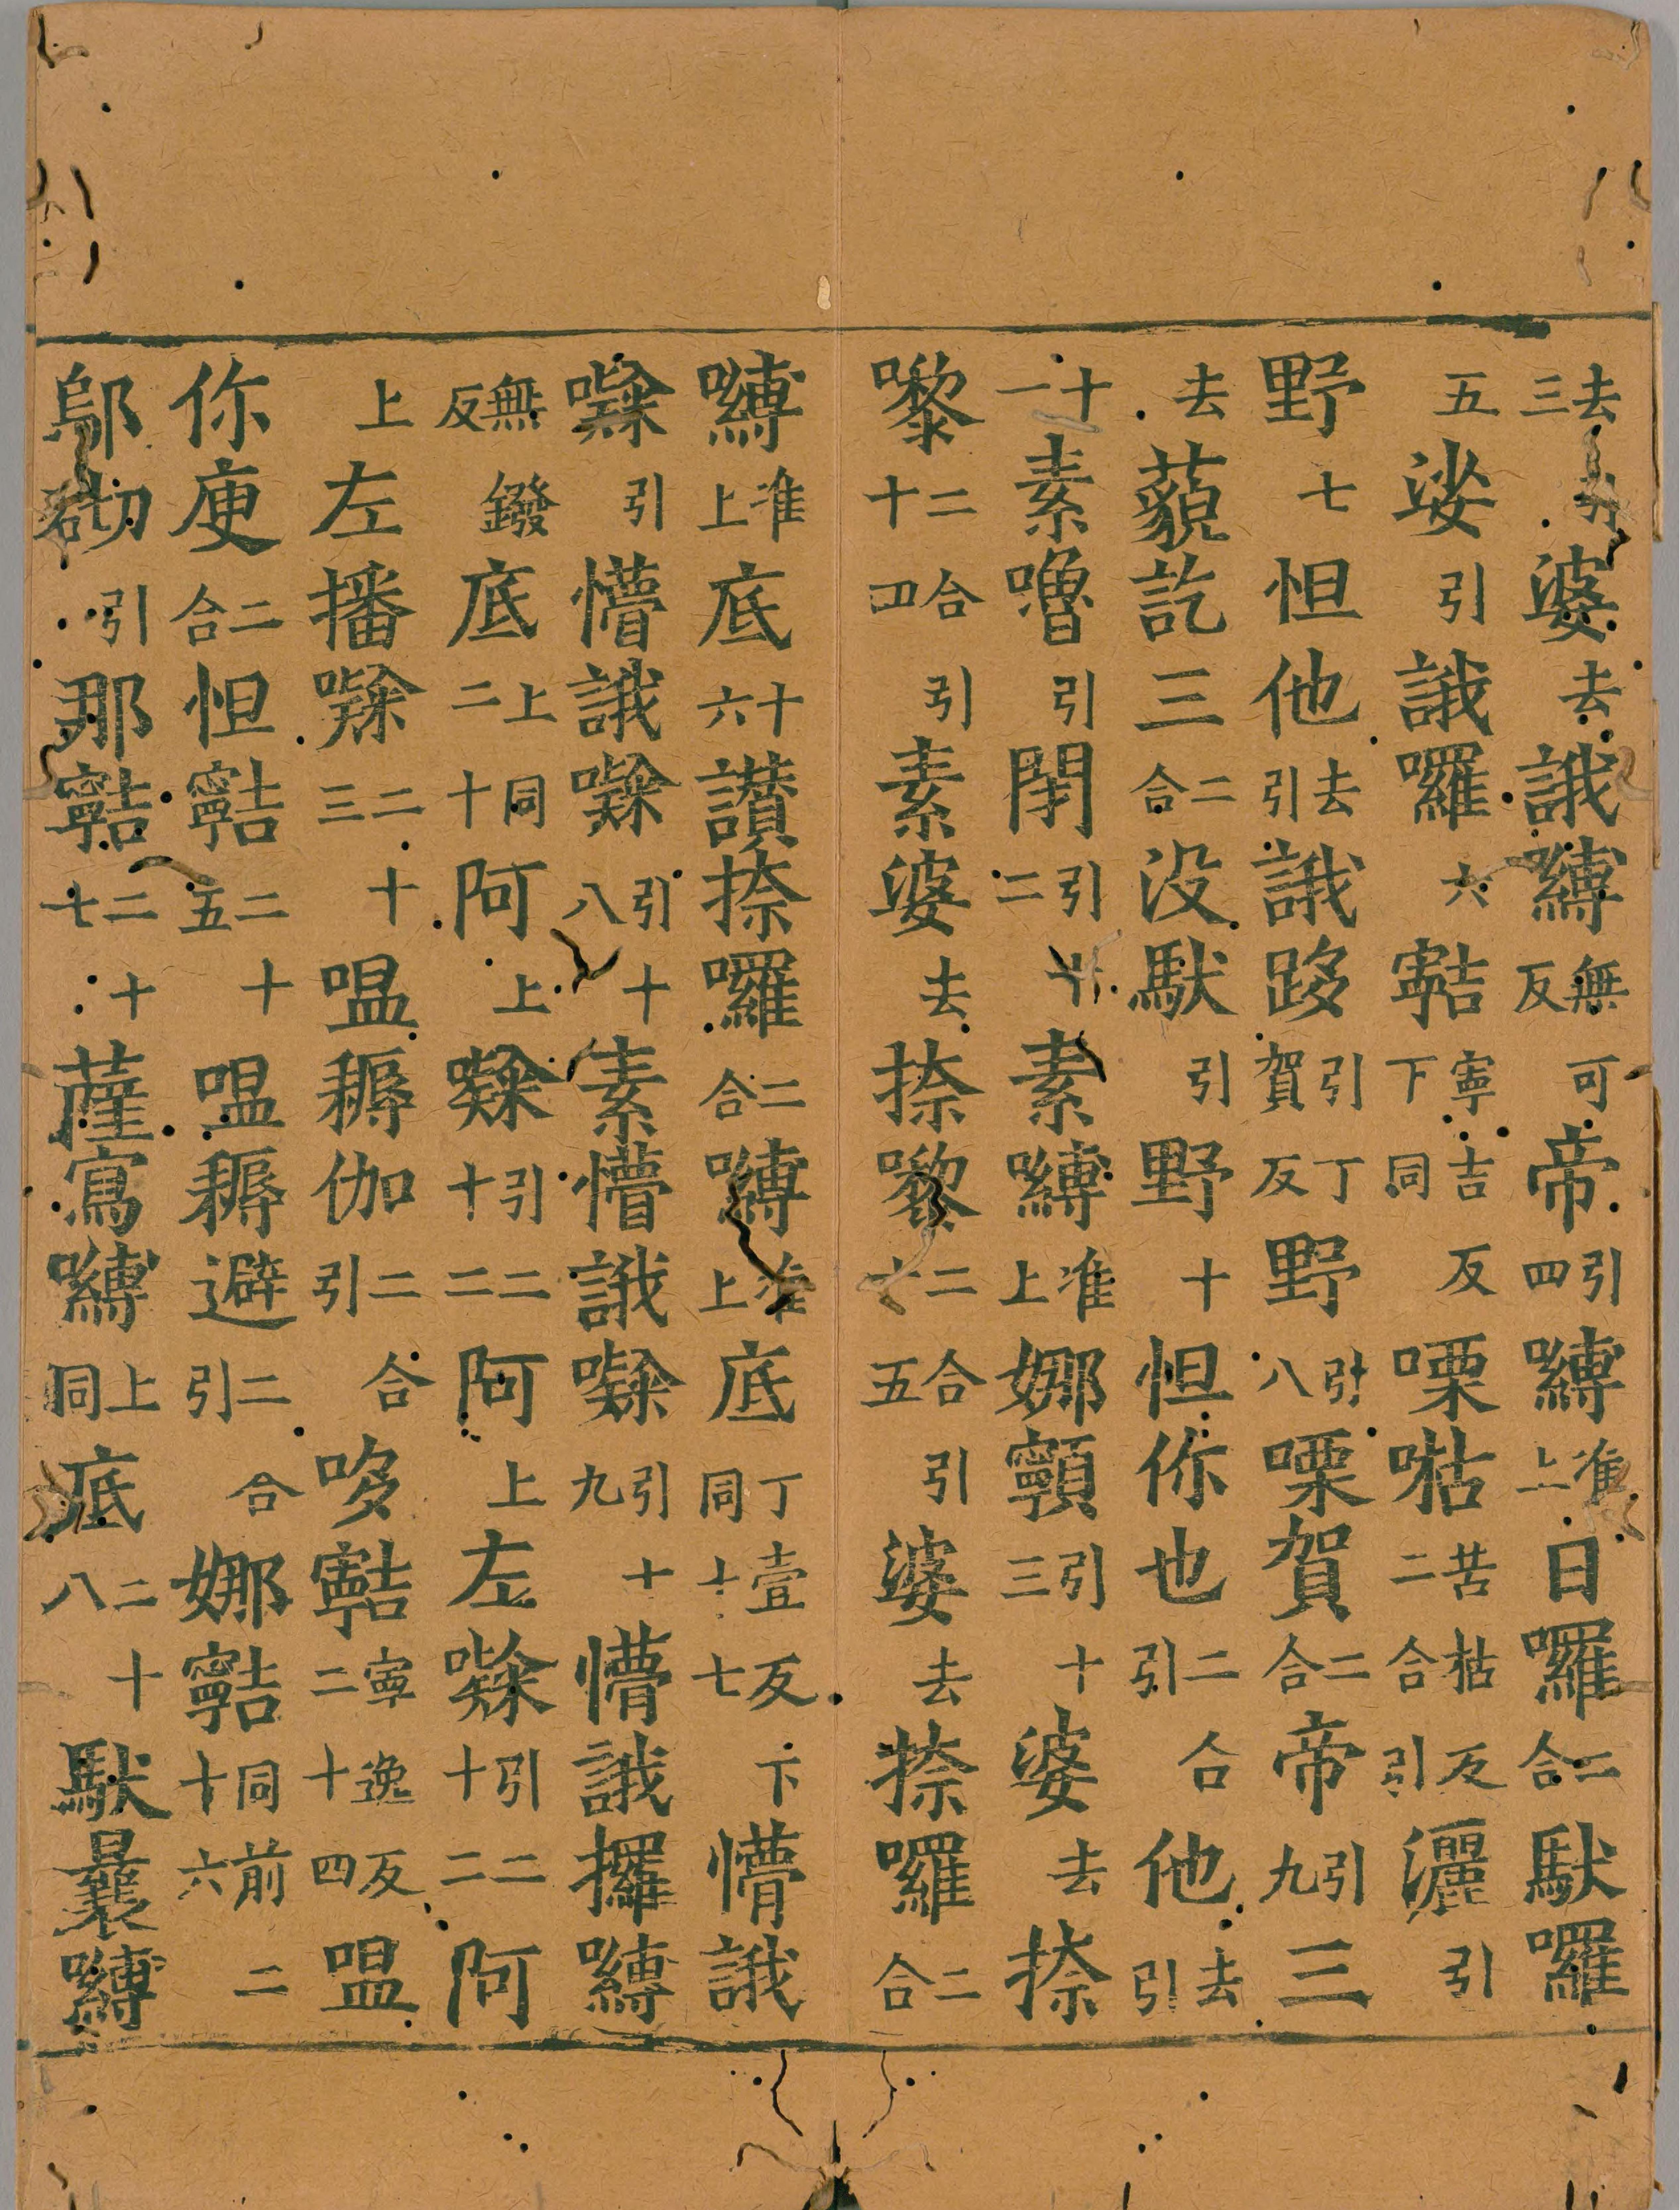 去引三婆去誐嚩無可反帝引四嚩准上日囉二合馱囉
五娑引誐囉六寧吉反下同㗚苦枯反二合引灑引
野七怛他去引誐跢引丁賀反野引八㗚賀二合帝引九三
去藐訖三二合没馱引野十怛你也二合引他去引
十一素嚕引閉引十二素嚩准上娜引十三婆去捺
嚟二合引十四素婆去捺嚟二合引十五婆去捺囉二合
嚩准上底十六讃捺囉二合嚩准上底丁壹反下同十七懵誐
㘑引懵誐㘑引十八素懵誐㘑引十九懵誐攞嚩
無鏺反底上同二十阿上㘑引二十二阿上左㘑引二十二阿
上左播㘑二十三嗢耨伽二合引哆寧逸反二十四嗢
你庾二合怛二十五嗢耨避二合引娜同前二十六
鄔引那二十七薩寫嚩上同底二十八馱曩嚩